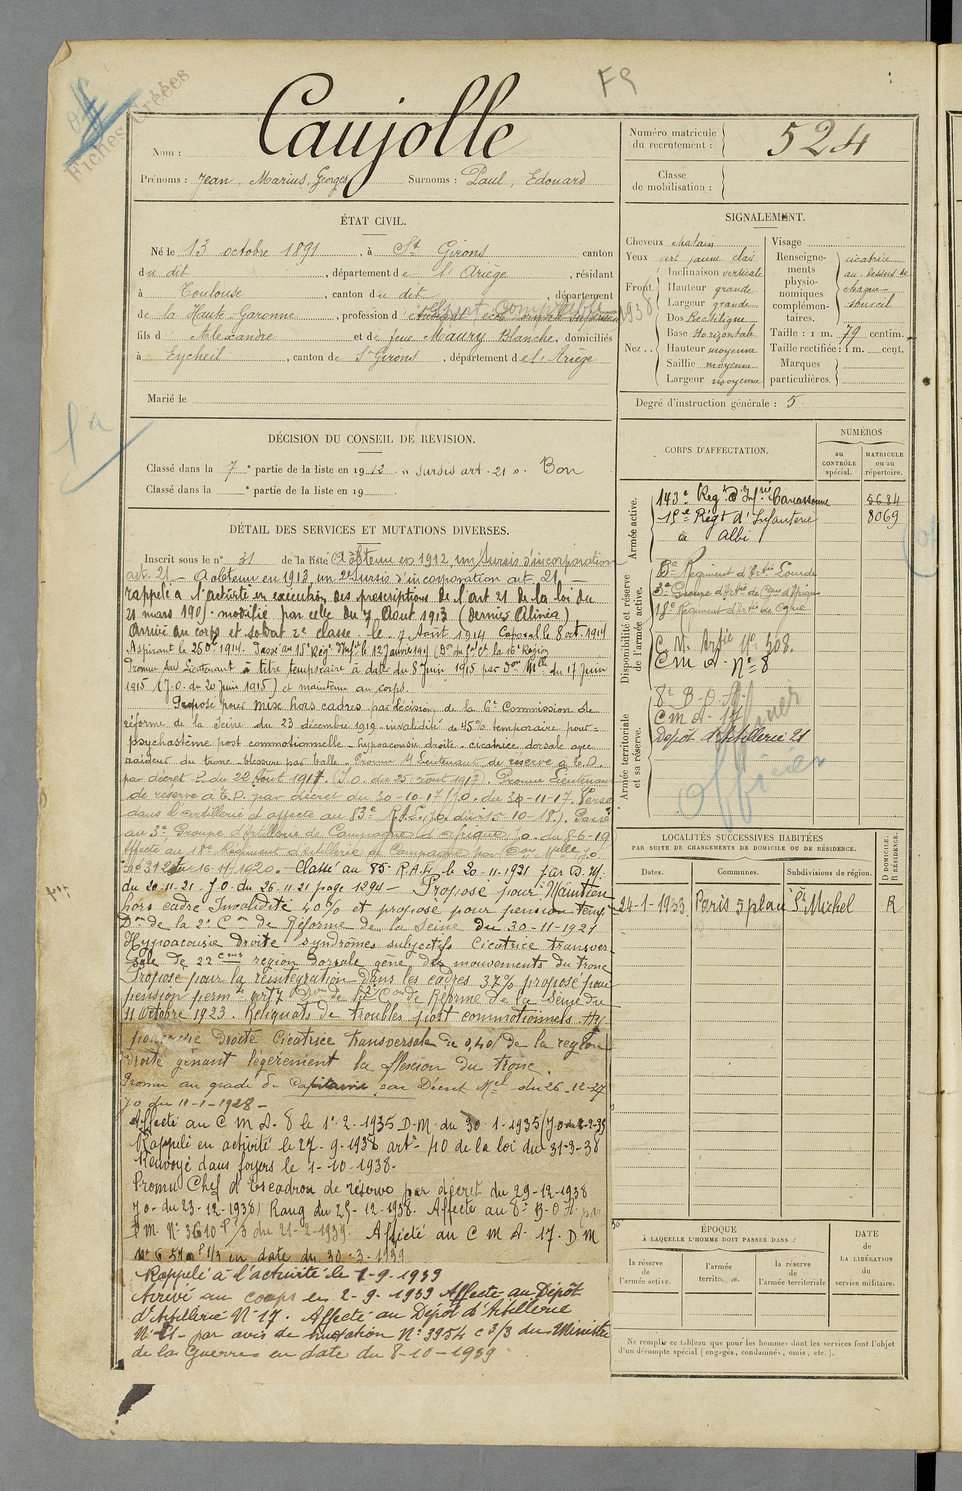 Fiches Créées
F9
Nom : Caujolle
Prénoms : Jean, Marius, Georges Surnoms : Paul, Edouard
Numéro matricule du recrutement : 524
Classe de mobilisation :
ÉTAT CIVIL.
Né le 13 octobre 1891, à St Girons canton
du dit, département de l'Ariège, résidant
à Toulouse, canton du dit, département
de la Haute Garonne, profession d
fils d'Alexandre et de feue Maury Blanche, domiciliés
à Eycheil, canton de St Girons, département de l'Ariège
Marié le
SIGNALEMENT.
Cheveux chatain
Yeux vert jaune clair
Front. Inclinaison verticale
Hauteur grande
Largeur grande
Nez. Dos Rectiligne
Base Horizontale
Hauteur moyenne
Saillie moyenne
Largeur moyenne
Visage
Renseignements physionomiques complémentaires. cicatrice au-dessus de chaque sourcil
Taille : 1 m. 79 centim.
Taille rectifiée : 1 m. cent.
Marques particulières.
Degré d'instruction générale : 5
DÉCISION DU CONSEIL DE REVISION.
Classé dans la 7e partie de la liste en 1912. « Sursis art. 21 ». Bon
Classé dans la e partie de la liste en 19
DÉTAIL DES SERVICES ET MUTATIONS DIVERSES.
Inscrit sous le n° 31 de la liste A obtenu en 1912, un Sursis d'incorporation
art. 21. — A obtenu en 1913, un 2e Sursis d'incorporation art 21. —
rappelé à l'activité en exécution des prescriptions de l'art 21 de la loi du
21 mars 1905 modifié par celle du 7 Aout 1913 (dernier Alinéa)
Arrivé au corps et soldat 2e classe le 7 Août 1914 Caporal le 8 oct. 1914
Aspirant le 1914. Passé au 15e Rég. d'Inf. le 12 janvier 1915 (Don du Gal Ct la 16e Région
Promu Sous Lieutenant à titre temporaire à dater du 8 juin 1915 par Don Melle du 17 juin
1915 (J.O. du 20 juin 1915) et maintenu au corps.
Proposé pour mise hors cadres par décision de la 6e Commission de
réforme de la Seine du 23 décembre 1919 - invalidité de 45% temporaire pour
psychasténie post commotionnelle - hypoacousie droite - cicatrice dorsale avec
raideur du tronc - blessure par balle. Promu S/Lieutenant de réserve à T.D.
par décret P. du 22 Aout 1917. (J.O. du 25 aout 1917). Promu Lieutenant
de réserve à T.D. par décret du 20-10-17 Versé
dans l'Artillerie et affecté au 83e Passé
au 3e Groupe d'Artillerie de Campagne d'Afrique J.O. du 8-6-19
Affecté au 18e Régiment d'Artillerie de Campagne par Don Melle J.O
n° 312 du 16-11-1920. Classé au 85e R.A.H. le 20-11-1921 par D.M.
du 20-11-21 - J.O. du 26-11-21 page 1294 — Proposé pour Maintien
hors cadre Invalidité 40% et proposé pour pension temp.
Don de la 2e Con de Réforme de la Seine du 30-11-1921
Hypoacousie Droite syndrômes subjectifs Cicatrice transver
sale de 22 cms région dorsale gêne des mouvements du tronc
Proposé pour la réintégration dans les cadres 37% proposé pour
pension perm. Don de la Con de Réforme de la Seine du
11 Octobre 1923. Reliquats de troubles post commotionnels. Hy
poacousie droite Cicatrice transversale de 0,40 de la région
droite gênant légèrement la flexion du tronc.
Promu au grade de Capitaine par Décret Mel du 26-12-27
JO du 11-1-1928 —
Affecté au C M A. 8 le 1-2-1935 D.M. du 30-1-1935
Rappelé en activité le 27-9-1938 arte 40 de la loi du 31-3-38
Renvoyé dans foyers le 1-10-1938.
Promu Chef d'Escadron de réserve par décret du 29-12-1938
J.O. du 29-12-1938) Rang du 25-12-1938. Affecté au 8e B.O.A. par
D.M. N° 3610 P/3 du 21-2-1939. Affecté au C M A. 17 - D M
en date du 30-3-1939
Rappelé à l'activité le 1-9-1939
Arrivé au corps le 2-9-1939 Affecté au Dépôt
d'Artillerie N° 17. Affecté au Dépôt d'Artillerie
N° 21 - par avis de mutation N° 3954 c 3/3 du Ministre
de la Guerre en date du 8-10-1939
CORPS D'AFFECTATION.
NUMÉROS
au CONTRÔLE spécial.
MATRICULE ou au répertoire.
Armée active.
143e Régt d'Infrie Carcassonne 5684
15e Régt d'Infanterie à Albi 8069
Disponibilité et réserve de l'armée active.
Régiment d'Artie Lourde
3e Groupe d'Artie de Cgne d'Afrique
18e Régiment d'Artie de Cgne
C. M. Artie N° 308.
C m A. N° 8
Armée territoriale et sa réserve.
8e B.O.A.
C m A. 17
Dépôt d'Artillerie 21
Officier
LOCALITÉS SUCCESSIVES HABITÉES
PAR SUITE DE CHANGEMENTS DE DOMICILE OU DE RÉSIDENCE.
Dates. Communes. Subdivisions de région. D DOMICILE. R RÉSIDENCE.
24-1-1933 Paris 5 place St Michel R
ÉPOQUE
À LAQUELLE L'HOMME DOIT PASSER DANS :
la réserve de l'armée active.
l'armée territoriale.
la réserve de l'armée territoriale
DATE DE LA LIBÉRATION du service militaire.
Ne remplir ce tableau que pour les hommes dont les services font l'objet
d'un décompte spécial (engagés, condamnés, omis, etc.).